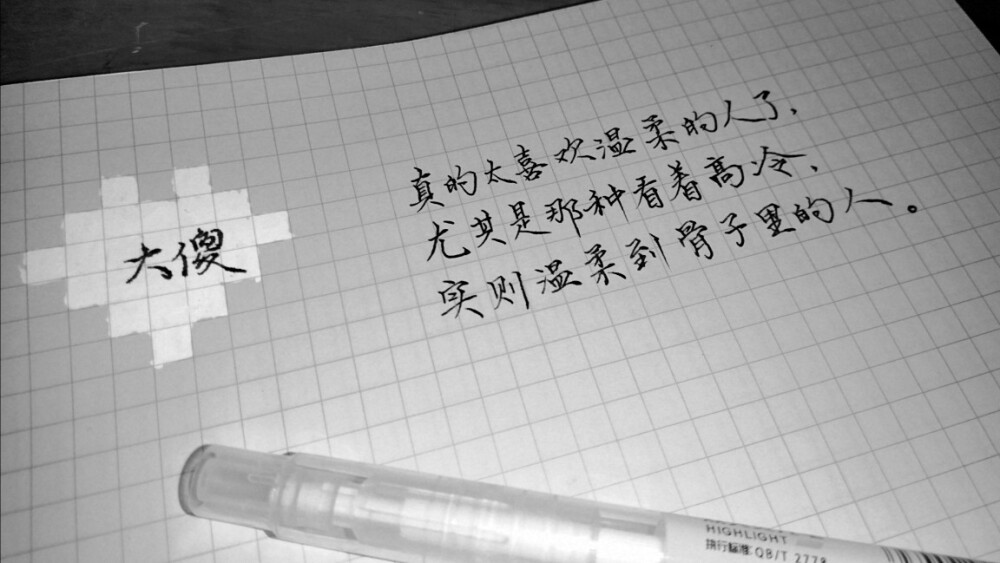 真的太喜欢温柔的人了、
尤其是那种看着高冷、
实则温柔到骨子里的人。
大傻
HIGHLIGHT
执行标准:QB/T 2778